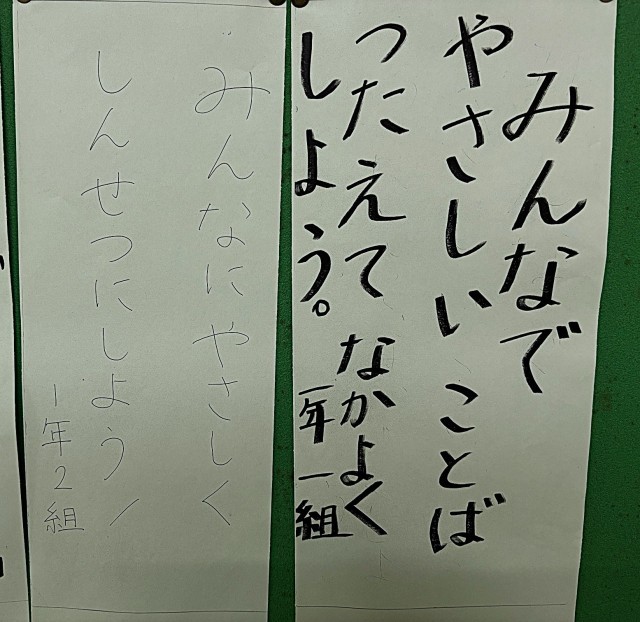 みんなで
やさしい ことば
つたえて なかよく
しよう。
一年一組
みんなに やさしく
しんせつにしよう!
1年2組